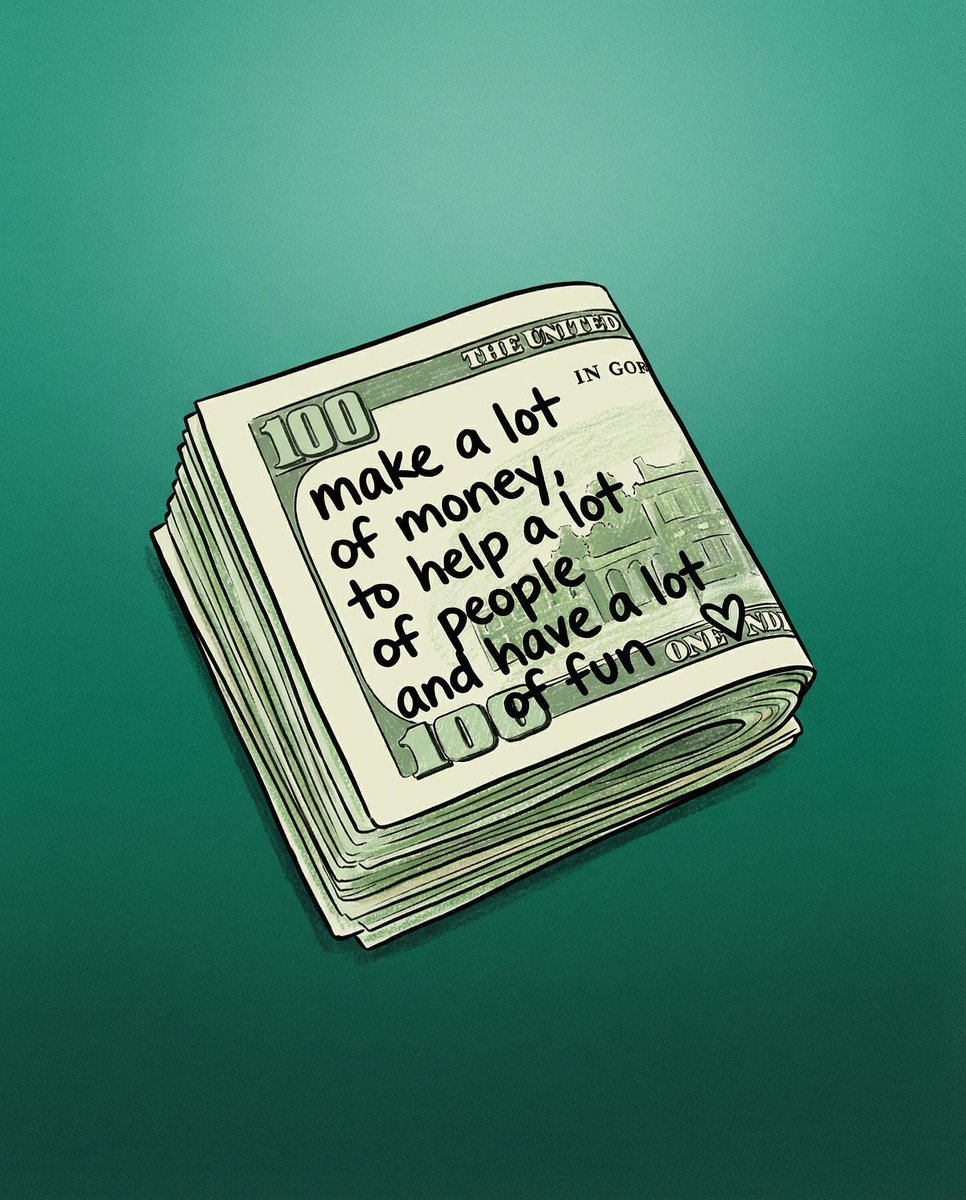 THE UNITED
IN GO
100
make a lot
of money,
to help a lot
of people
and have a lot
of fun ♡
ONE ND
100